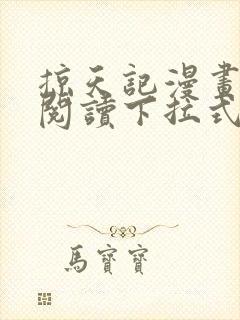 掠天記漫畫
閱讀下拉式
馬寶寶